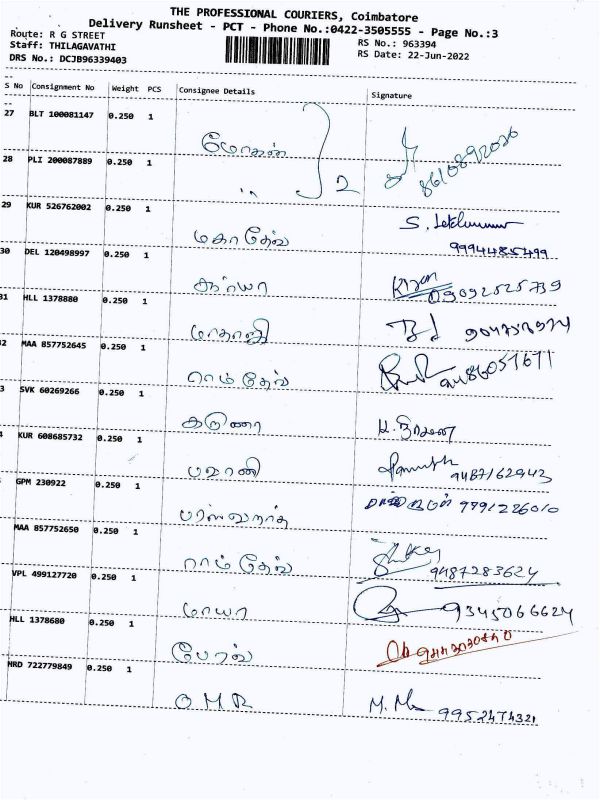 THE PROFESSIONAL COURIERS, Coimbatore
Delivery Runsheet - PCT - Phone No.:0422-3505555 - Page No.:3
Route: R G STREET
RS No.: 963394
Staff: THILAGAVATHI
RS Date: 22-Jun-2022
DRS No.: DCJB96339403
S No Consignment No Weight PCS Consignee Details Signature
27 BLT 100081147 0.250 1
மோகன் 2 8610892020
28 PLI 200087889 0.250 1
29 KUR 526762002 0.250 1 S.
மகாதேவ் 9994485499
30 DEL 120498997 0.250 1
கர்யா 09092525739
31 HLL 1378880 0.250 1
மாதாஜி
MAA 857752645 0.250 1
ராம்தேவ் 9486057671
SVK 60269266 0.250 1
கருணா
KUR 608685732 0.250 1
பவானி 9487162943
GPM 230922 0.250 1
9791226010
MAA 857752650 0.250 1
ராம்தேவ்
9487283624
VPL 499127720 0.250 1
மாயா 9345066624
HLL 1378680 0.250 1
பேரல்
HRD 722779849 0.250 1
O M R M. 9952474321